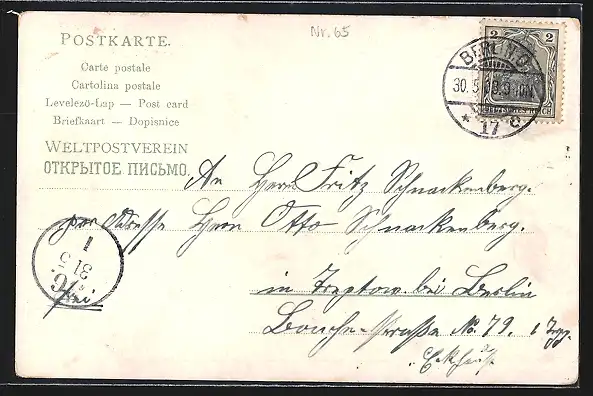 Nr. 65
POSTKARTE.
Carte postale
Cartolina postale
Levelező-Lap — Post card
Briefkaart — Dopisnice
WELTPOSTVEREIN
ОТКРЫТОЕ ПИСЬМО.
2 2
DEUTSCHES REICH
BERLIN O
30.5.
* 17 c
An Herrn Fritz Schnackenberg.
per Adresse Herrn Otto Schnackenberg.
in Treptow bei Berlin
Bouché-Straße No. 79. 1 Trpp.
Eckhaus
31 5
frei.